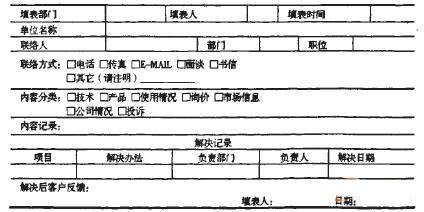 填表部门 填表人 填表时间
单位名称
联络人 部门 职位
联络方式：□电话 □传真 □E-MAIL □面谈 □书信
□其它（请注明）
内容分类：□技术 □产品 □使用情况 □询价 □市场信息
□公司情况 □投诉
内容记录：
解决记录
项目 解决办法 负责部门 负责人 解决日期
解决后客户反馈：
填表人： 日期：